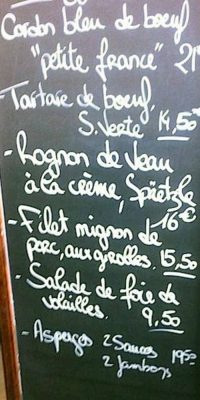 Cordon bleu de boeuf
"petite france" 21
- Tartare de boeuf,
S. Verte 14,50
- Rognon de Veau
à la crème, Spätzle
16€
- Filet mignon de
porc, aux girolles. 15,50
- Salade de foie de
volailles. 9,50
- Asperges 2 Sauces 19,50
2 Jambons